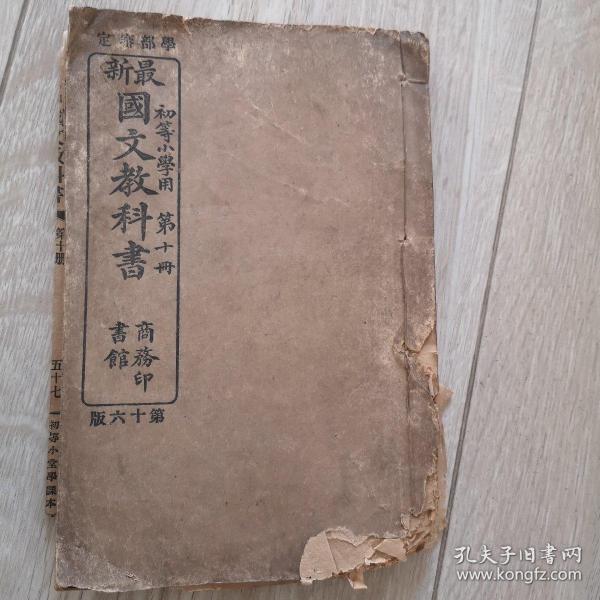 學部審定
最新
國文教科書
初等小學用 第十冊
商務印
書館
第十六版
文教科書
第十册
五十七
初等小堂學課本
孔夫子旧书网
www.kongfz.com